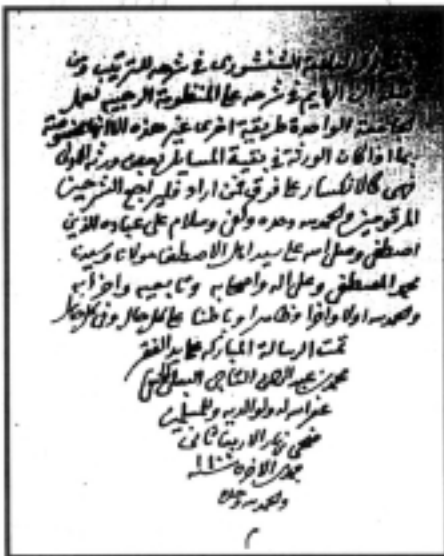 العلامة الشنشوري في شرحه للترتيب ومن
قبله ابن الهايم في شرحه على المنظومة الرحبيه لعمل
الجامعة الواحدة طريقة اخرى غير هذه لكنها مخصوصة
بما اذا كانت الورثة في بقية المسايل بعض ورثة الاولى
فهي كالانكسار على فرق فمن اراد فليراجع الشرحين
المرقومين والحمد لله وحده وكفى وسلام على عباده الذين
اصطفى وصلى الله على سيد اهل الاصطفا مولانا وسيدنا
محمد المصطفى وعلى اله واصحابه وتابعيه واحزابه
والحمد لله اولا واخرا وظاهرا وباطنا على كل حال وفي كل حال
تمت الرسالة المباركة على يد الفقير
محمد بن عبد الرحمن التاجي البعلي
غفر الله له ولوالديه وللمسلمين
ضحى نهار الاربعا ثاني
جمادى الاخرة سنة
والحمد لله وحده
م